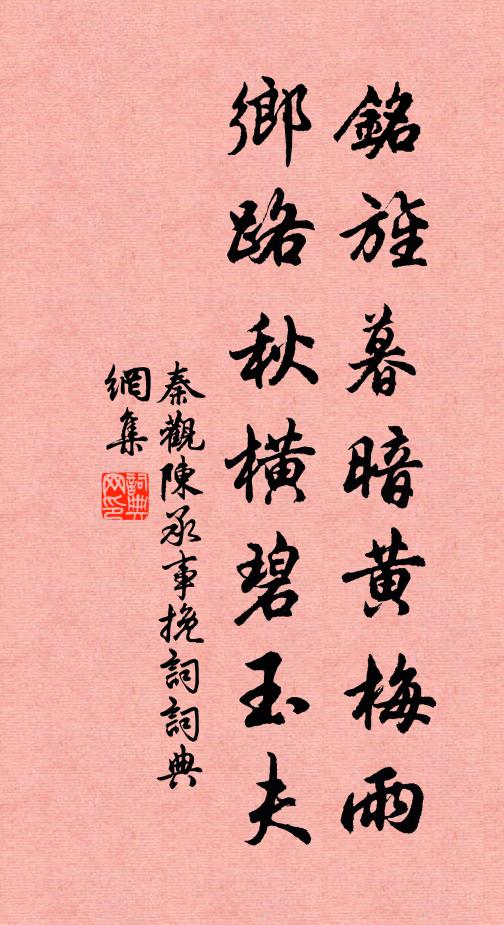 銘旌暮暗黄梅雨
鄉路秋橫碧玉夫
秦觀陳承事挽詞詞典
網集
詞典
网印